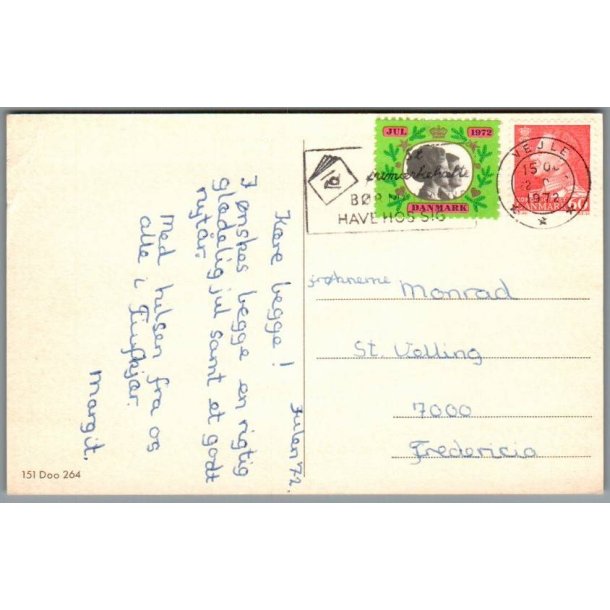 JUL 1972
DANMARK
frimærkehæfte
BØR MAN
HAVE HOS SIG
VEJLE
1972
DANMARK
Julen 72.
Kære begge!
I ønskes begge en rigtig
glædelig jul samt et godt
nytår.
Med hilsen fra os
alle i
Margit.
frøknerne Monrad
St. Velling
7000
Fredericia
151 Doo 264